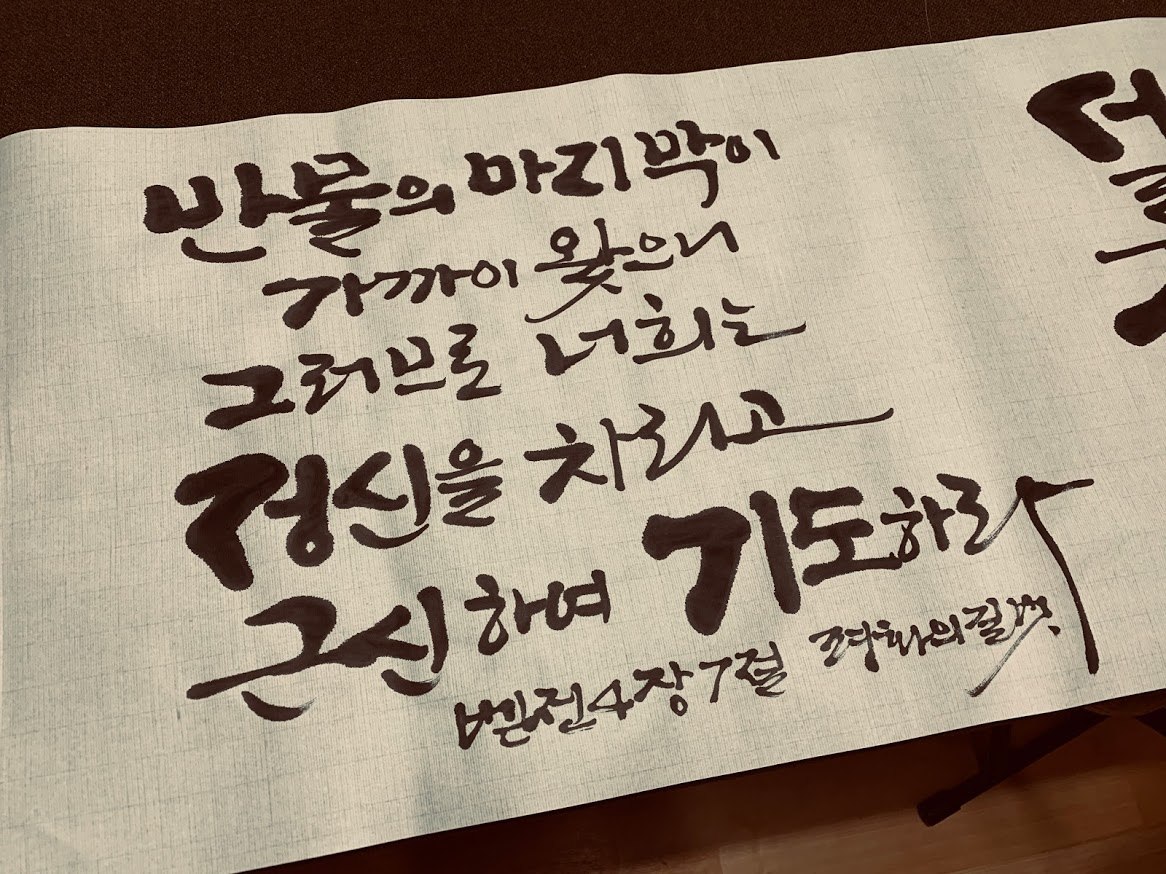 만물의 마지막이
가까이 왔으니
그러므로 너희는
정신을 차리고
근신하여 기도하라
벧전4장7절 평화의길벗